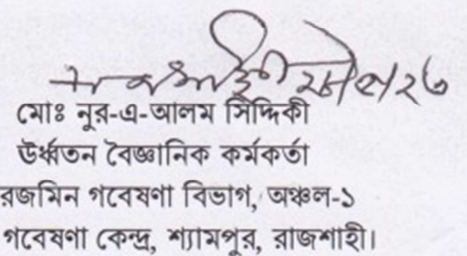 মোঃ নুর-এ-আলম সিদ্দিকী
উর্ধ্বতন বৈজ্ঞানিক কর্মকর্তা
রজমিন গবেষণা বিভাগ, অঞ্চল-১
গবেষণা কেন্দ্র, শ্যামপুর, রাজশাহী।